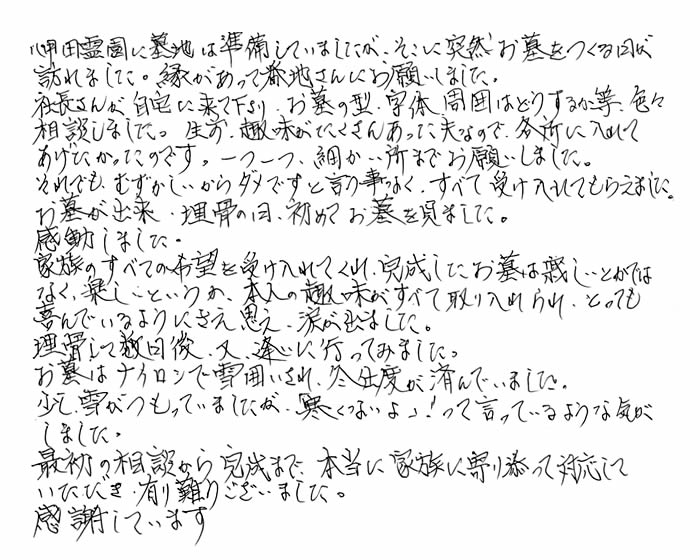 岬田霊園に墓地は準備していましたが、そこに突然お墓をつくる日が
訪れました。縁があって菊地さんにお願いしました。
社長さんが自宅に来て下さり、お墓の型、字体、周囲はどうするか等、色々
相談しました。生前、趣味がたくさんあった夫なので、各所に入れて
あげたかったのです。一つ一つ、細かい所までお願いしました。
それでも、むずかしいからダメですと言う事なく、すべて受け入れてもらえました。
お墓が出来、埋骨の日、初めてお墓を見ました。
感動しました。
家族のすべての希望を受け入れてくれ、完成したお墓は寂しいとかでは
なく、楽しいというか、本人の趣味がすべて取り入れられ、とっても
喜んでいるようにさえ思え、涙が出ました。
埋骨して数日後、又、逢いに行ってみました。
お墓はナイロンで雪囲いされ、冬仕度が済んでいました。
少し雪がつもっていましたが、寒くないよ!って言っているような気が
しました。
最初の相談から完成まで、本当に家族に寄り添って対応して
いただき、有り難うございました。
感謝しています